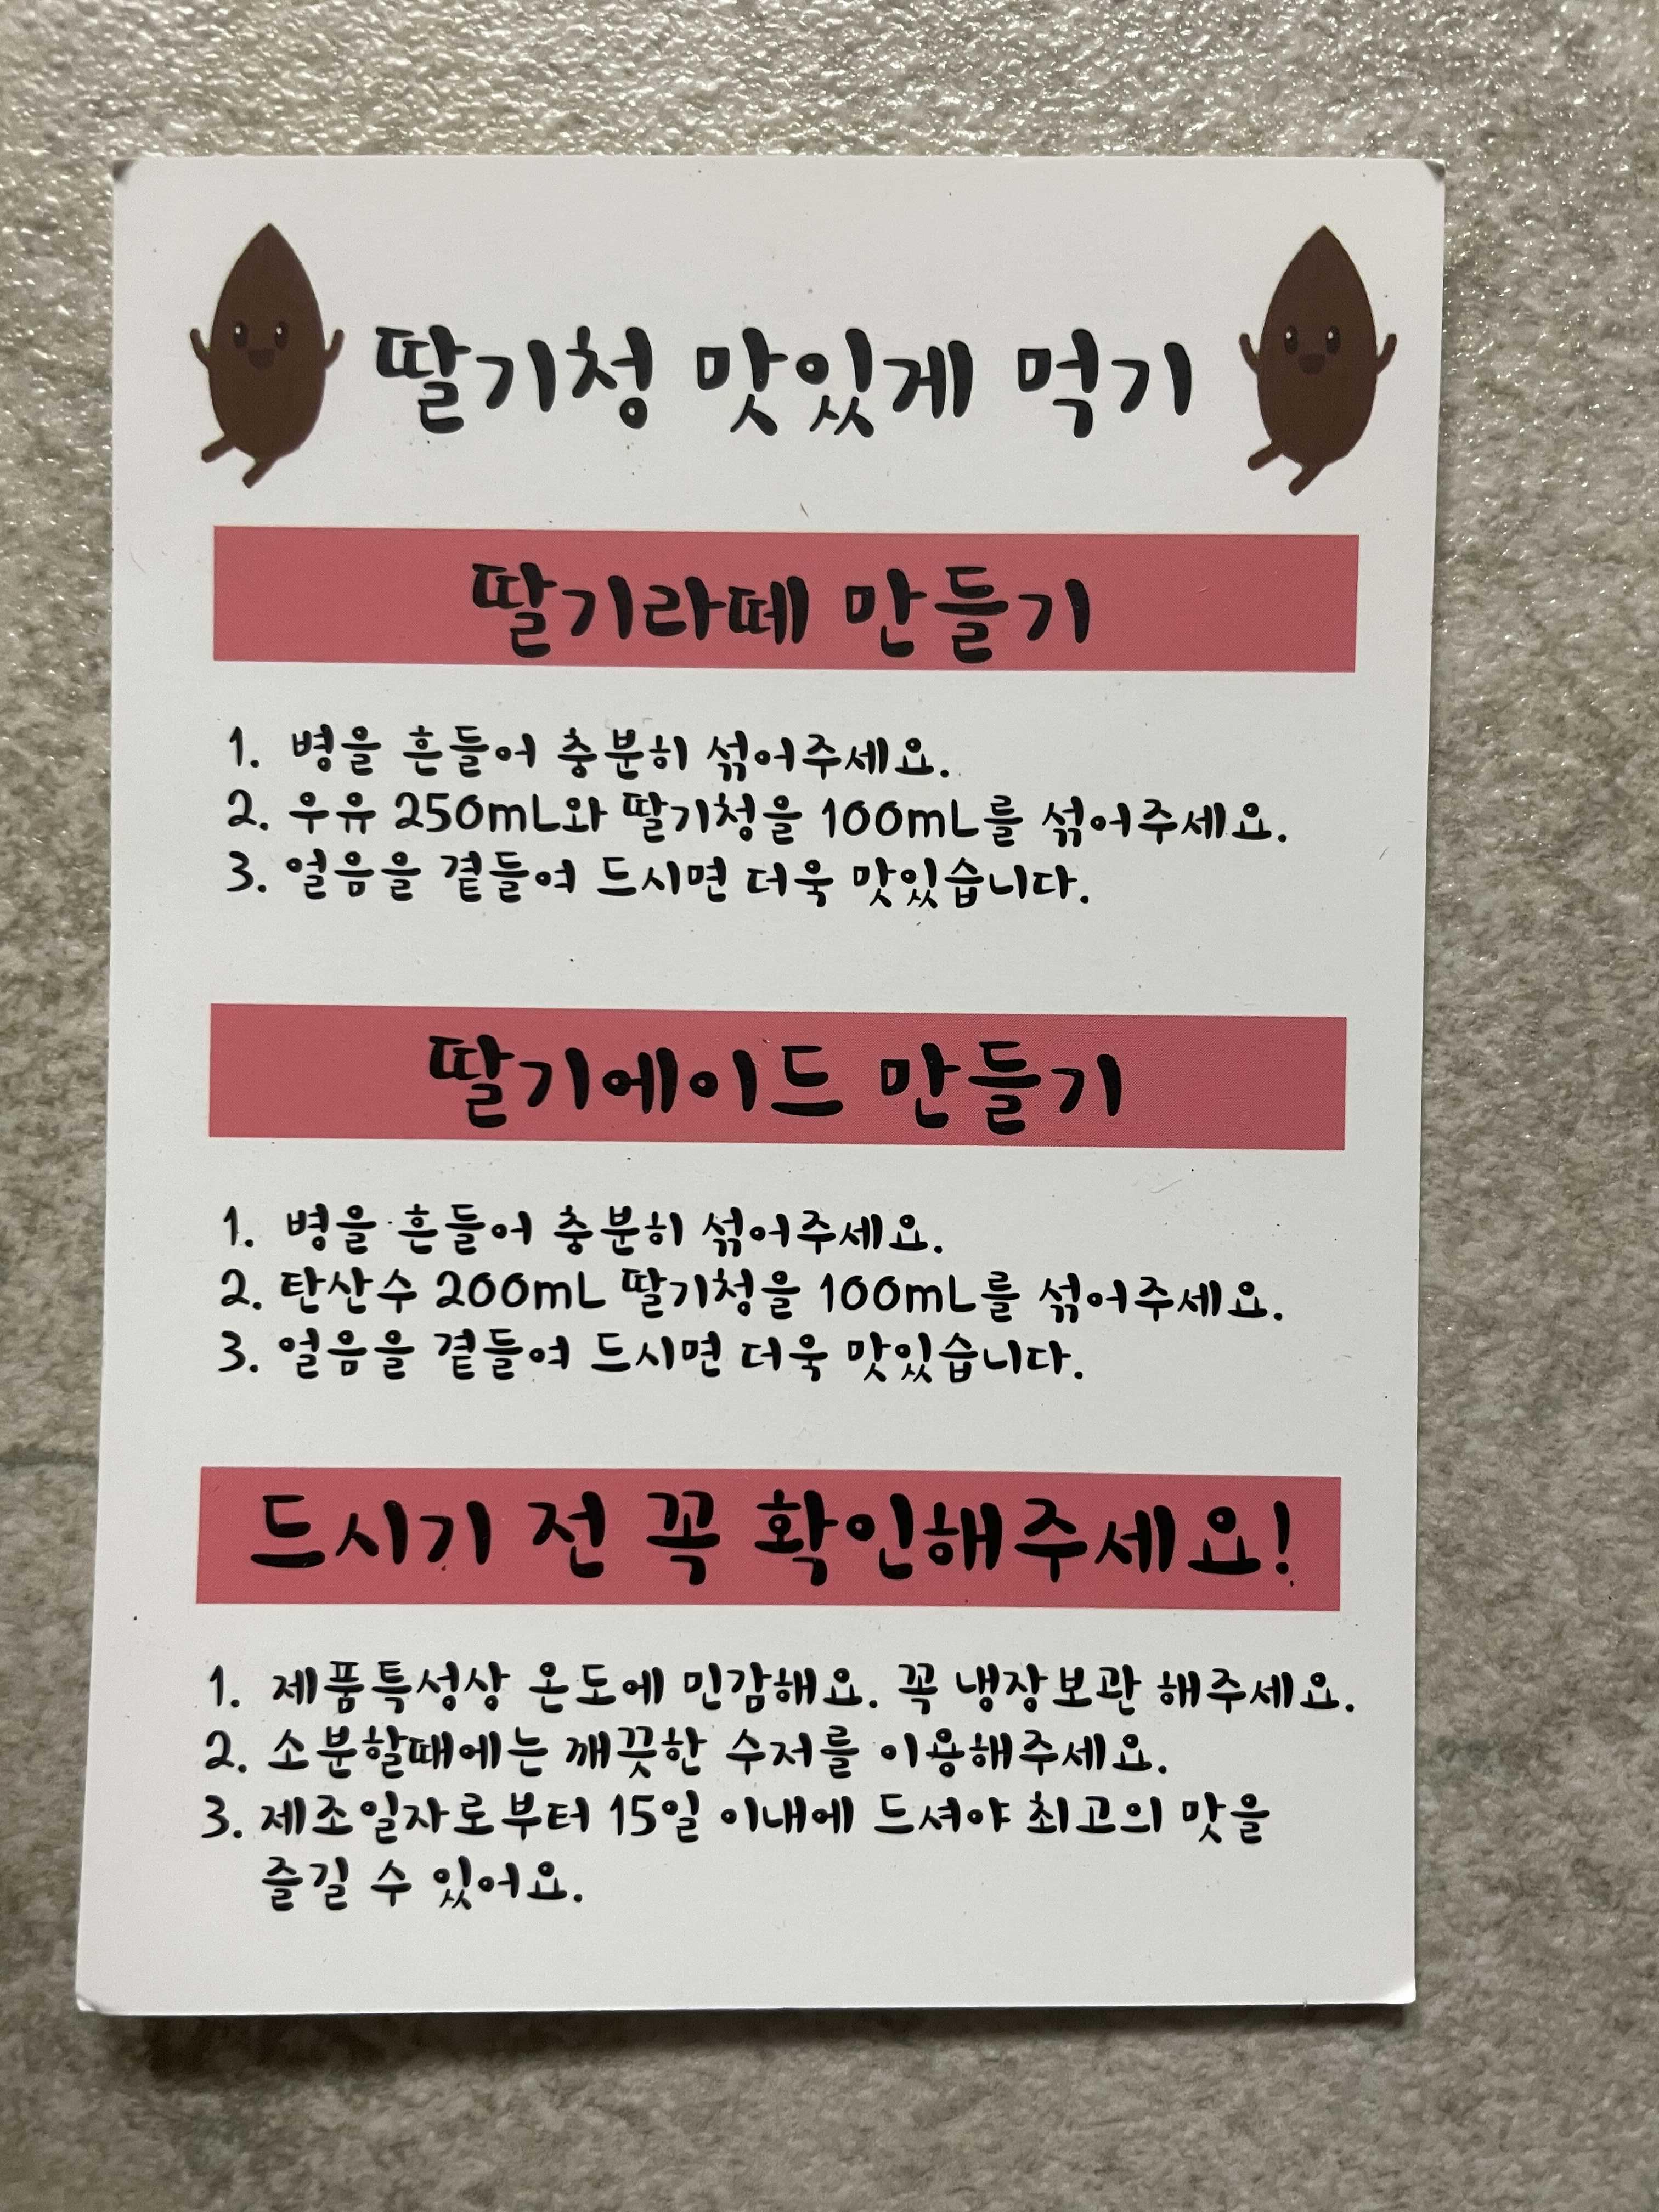 딸기청 맛있게 먹기
딸기라떼 만들기
1. 병을 흔들어 충분히 섞어주세요.
2. 우유 250mL와 딸기청을 100mL를 섞어주세요.
3. 얼음을 곁들여 드시면 더욱 맛있습니다.
딸기에이드 만들기
1. 병을 흔들어 충분히 섞어주세요.
2. 탄산수 200mL 딸기청을 100mL를 섞어주세요.
3. 얼음을 곁들여 드시면 더욱 맛있습니다.
드시기 전 꼭 확인해주세요!
1. 제품특성상 온도에 민감해요. 꼭 냉장보관 해주세요.
2. 소분할때에는 깨끗한 수저를 이용해주세요.
3. 제조일자로부터 15일 이내에 드셔야 최고의 맛을
즐길 수 있어요.